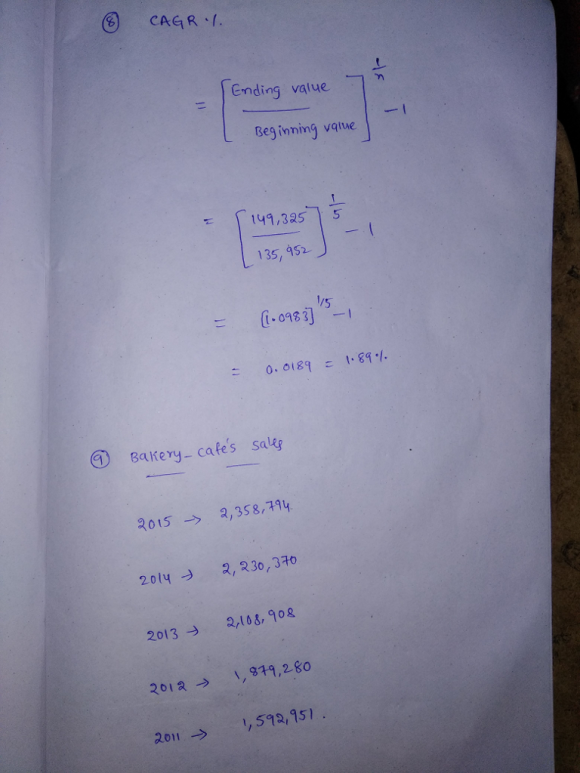 ⑧ CAGR %.
= [Ending value / Beginning value]^1/n - 1
= [149,325 / 135,952]^1/5 - 1
= [1.0983]^1/5 - 1
= 0.0189 = 1.89%.
⑨ Bakery-cafe's sales
2015 → 2,358,794
2014 → 2,230,370
2013 → 2,108,908
2012 → 1,879,280
2011 → 1,592,951.